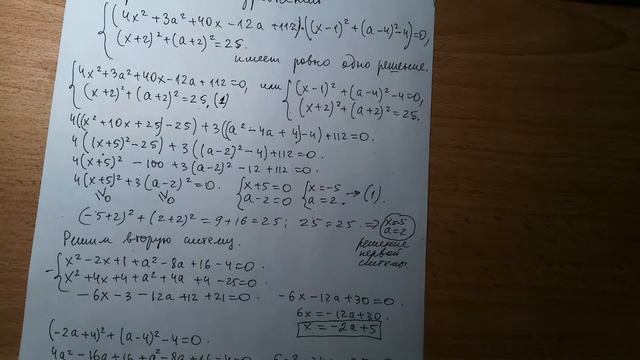 (4x² + 3a² + 40x - 12a + 112)·((x-1)² + (a-4)² - 4) = 0,
(x+2)² + (a+2)² = 25.
имеет ровно одно решение.
4x² + 3a² + 40x - 12a + 112 = 0, или (x-1)² + (a-4)² - 4 = 0,
(x+2)² + (a+2)² = 25, (1) (x+2)² + (a+2)² = 25.
4((x² + 10x + 25) - 25) + 3((a² - 4a + 4) - 4) + 112 = 0.
4((x+5)² - 25) + 3((a-2)² - 4) + 112 = 0.
4(x+5)² - 100 + 3(a-2)² - 12 + 112 = 0.
4(x+5)² + 3(a-2)² = 0. x+5 = 0 x = -5 → (1).
a-2 = 0 a = 2.
(-5+2)² + (2+2)² = 9 + 16 = 25; 25 = 25. ⇒ x = -5 a = 2
решение
первой
системы.
Решим вторую систему.
x² - 2x + 1 + a² - 8a + 16 - 4 = 0.
x² + 4x + 4 + a² + 4a + 4 - 25 = 0.
-6x - 3 - 12a + 12 + 21 = 0. -6x - 12a + 30 = 0.
6x = -12a + 30.
x = -2a + 5
(-2a+4)² + (a-4)² - 4 = 0.